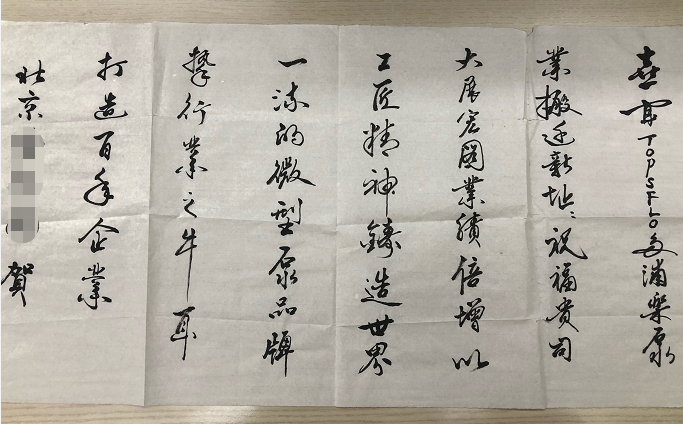 喜闻TOPSFLO多浦乐泵
業搬迁新址，祝福贵司
大展宏图業绩倍增以
工匠精神鑄造世界
一流的微型泵品牌
擎行業之牛耳
打造百年企業
北京
賀